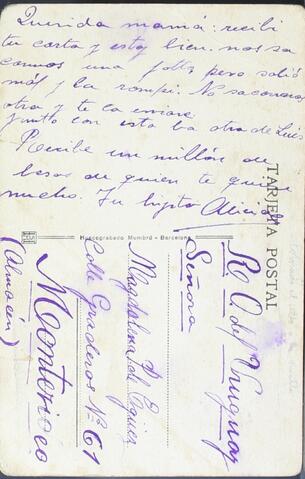 Querida mamá: recibí
tu carta y estoy bien. nos sa
camos una foto, pero salió
mal y la rompí. No sacaremos
otra y te la enviaré
Junto con esta ba otra de Luis
Recibe un millón de
besos de quien te quiere
mucho. Tu hijita Alicia
TARJETA POSTAL
Huecograbado Mumbrú - Barcelona
R. O. del Uruguay
Señora
Magdalena P. de
Calle Graderos Nº 61
Montevideo
(Almacén)